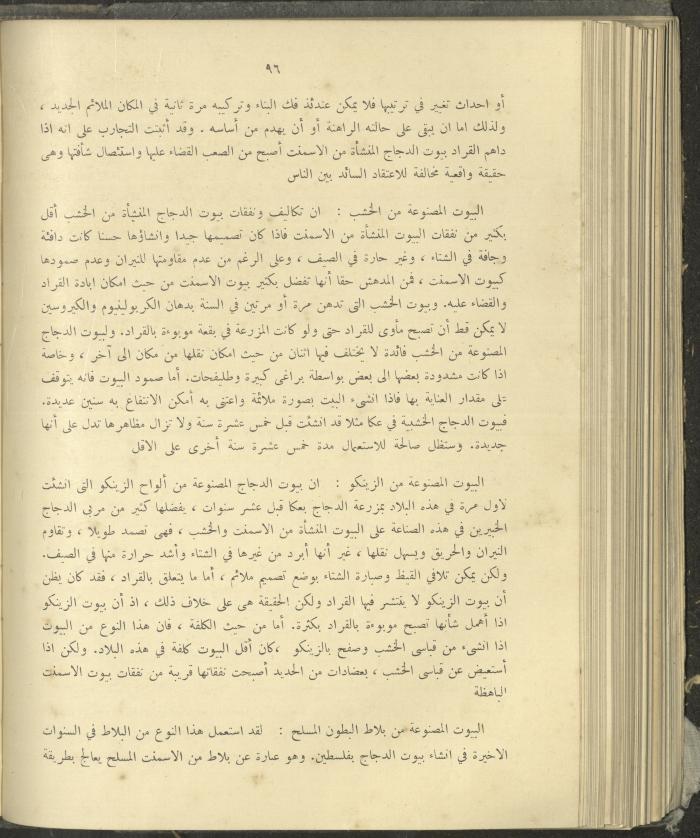 ٩٦
أو احداث تغيير في ترتيبها فلا يمكن عندئذ فك البناء وتركيبه مرة ثانية في المكان الملائم الجديد ،
ولذلك اما ان يبقى على حالته الراهنة أو أن يهدم من أساسه . وقد أثبتت التجارب على انه اذا
داهم القراد بيوت الدجاج المنشأة من الاسمنت أصبح من الصعب القضاء عليها واستئصال شأفتها وهى
حقيقة واقعية مخالفة للاعتقاد السائد بين الناس
البيوت المصنوعة من الخشب : ان تكاليف ونفقات بيوت الدجاج المنشأة من الخشب أقل
بكثير من نفقات البيوت المنشأة من الاسمنت فاذا كان تصميمها جيدا وانشاؤها حسنا كانت دافئة
وجافة في الشتاء ، وغير حارة في الصيف ، وعلى الرغم من عدم مقاومتها للنيران وعدم صمودها
كبيوت الاسمنت ، فمن المدهش حقا أنها تفضل بكثير بيوت الاسمنت من حيث امكان ابادة القراد
والقضاء عليه. وبيوت الخشب التى تدهن مرة أو مرتين في السنة بدهان الكربولينيوم والكيروسين
لا يمكن قط أن تصبح مأوى للقراد حتى ولو كانت المزرعة في بقعة موبوءة بالقراد. ولبيوت الدجاج
المصنوعة من الخشب فائدة لا يختلف فيها اثنان من حيث امكان نقلها من مكان الى آخر ، وخاصة
اذا كانت مشدودة بعضها الى بعض بواسطة براغى كبيرة وطليفحات. أما صمود البيوت فانه يتوقف
على مقدار العناية بها فاذا انشىء البيت بصورة ملائمة واعتنى به أمكن الانتفاع به سنين عديدة.
فبيوت الدجاج الخشبية في عكا مثلا قد انشئت قبل خمس عشرة سنة ولا تزال مظاهرها تدل على أنها
جديدة. وستظل صالحة للاستعمال مدة خمس عشرة سنة أخرى على الاقل
البيوت المصنوعة من الزينكو : ان بيوت الدجاج المصنوعة من ألواح الزينكو التى انشئت
لاول مرة في هذه البلاد بمزرعة الدجاج بعكا قبل عشر سنوات ، يفضلها كثير من مربى الدجاج
الخبيرين في هذه الصناعة على البيوت المنشأة من الاسمنت والخشب ، فهى تصمد طويلا ، وتقاوم
النيران والحريق ويسهل نقلها ، غير أنها أبرد من غيرها في الشتاء وأشد حرارة منها في الصيف.
ولكن يمكن تلافي القيظ وصبارة الشتاء بوضع تصميم ملائم ، أما ما يتعلق بالقراد ، فقد كان يظن
أن بيوت الزينكو لا ينتشر فيها القراد ولكن الحقيقة هى على خلاف ذلك ، اذ أن بيوت الزينكو
اذا أهمل شأنها تصبح موبوءة بالقراد بكثرة. أما من حيث الكلفة ، فان هذا النوع من البيوت
اذا انشىء من قباسى الخشب وصفح بالزينكو ،كان أقل البيوت كلفة في هذه البلاد. ولكن اذا
أستعيض عن قباسى الخشب ، بعضادات من الحديد أصبحت نفقاتها قريبة من نفقات بيوت الاسمنت
الباهظة
البيوت المصنوعة من بلاط البطون المسلح : لقد استعمل هذا النوع من البلاط في السنوات
الاخيرة في انشاء بيوت الدجاج بفلسطين. وهو عبارة عن بلاط من الاسمنت المسلح يعالج بطريقة